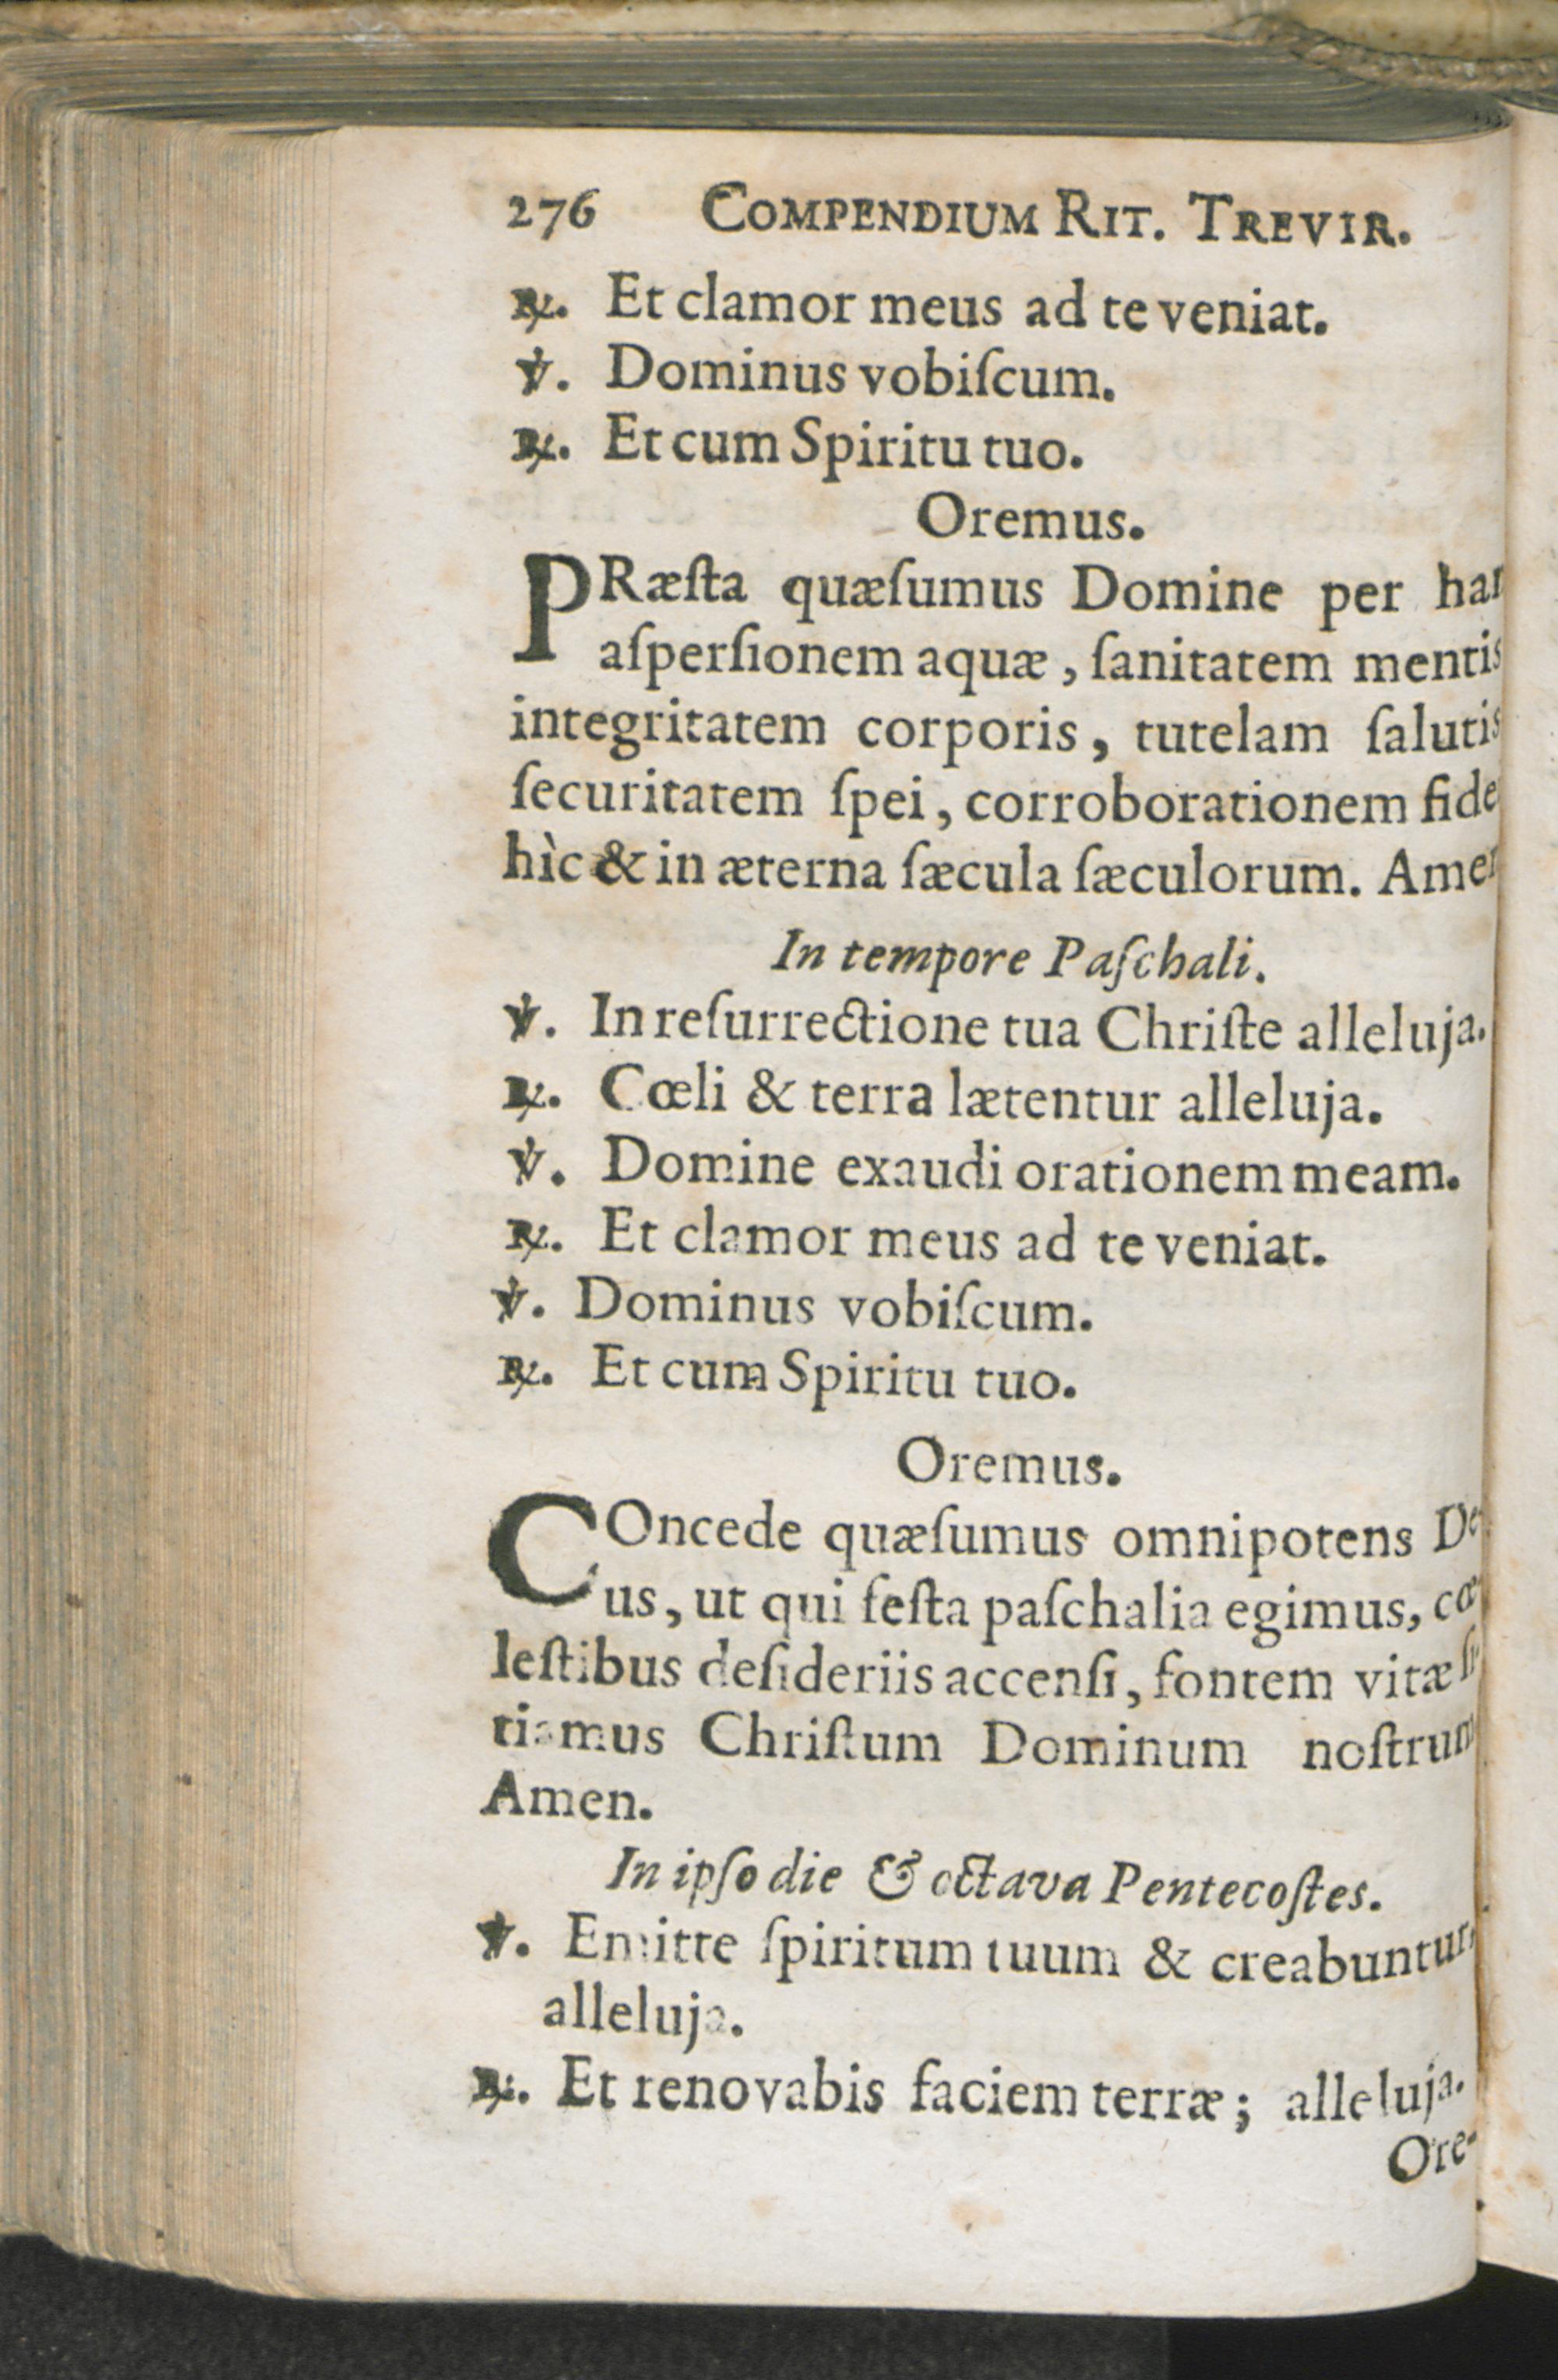 276 COMPENDIUM RIT. TREVIR.
℟. Et clamor meus ad te veniat.
℣. Dominus vobiſcum.
℟. Et cum Spiritu tuo.
Oremus.
PRæſta quæſumus Domine per han
aſperſionem aquæ, ſanitatem mentis
integritatem corporis, tutelam ſalutis
ſecuritatem ſpei, corroborationem fide
hìc & in æterna ſæcula ſæculorum. Amen
In tempore Paſchali.
℣. In reſurrectione tua Chriſte alleluja.
℟. Cœli & terra lætentur alleluja.
℣. Domine exaudi orationem meam.
℟. Et clamor meus ad te veniat.
℣. Dominus vobiſcum.
℟. Et cum Spiritu tuo.
Oremus.
COncede quæſumus omnipotens De-
us, ut qui feſta paſchalia egimus, cœ
leſtibus deſideriis accenſi, fontem vitæ ſi
tiamus Chriſtum Dominum noſtrum
Amen.
In ipſo die & octava Pentecoſtes.
℣. Emitte ſpiritum tuum & creabuntur,
alleluja.
℟. Et renovabis faciem terræ; alleluja.
Ore-